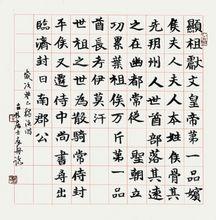 顯祖獻文皇帝第一品嬪
侯夫人夫人本姓侯骨其
先朔州人世酋部落其遠
之在幽都常從 聖朝立
功累葉祖俟万斤第一品
酋長考伊莫汗
世祖之世為散騎常侍封
平侯又遷侍中尚書尋出
臨濟封日南郡公